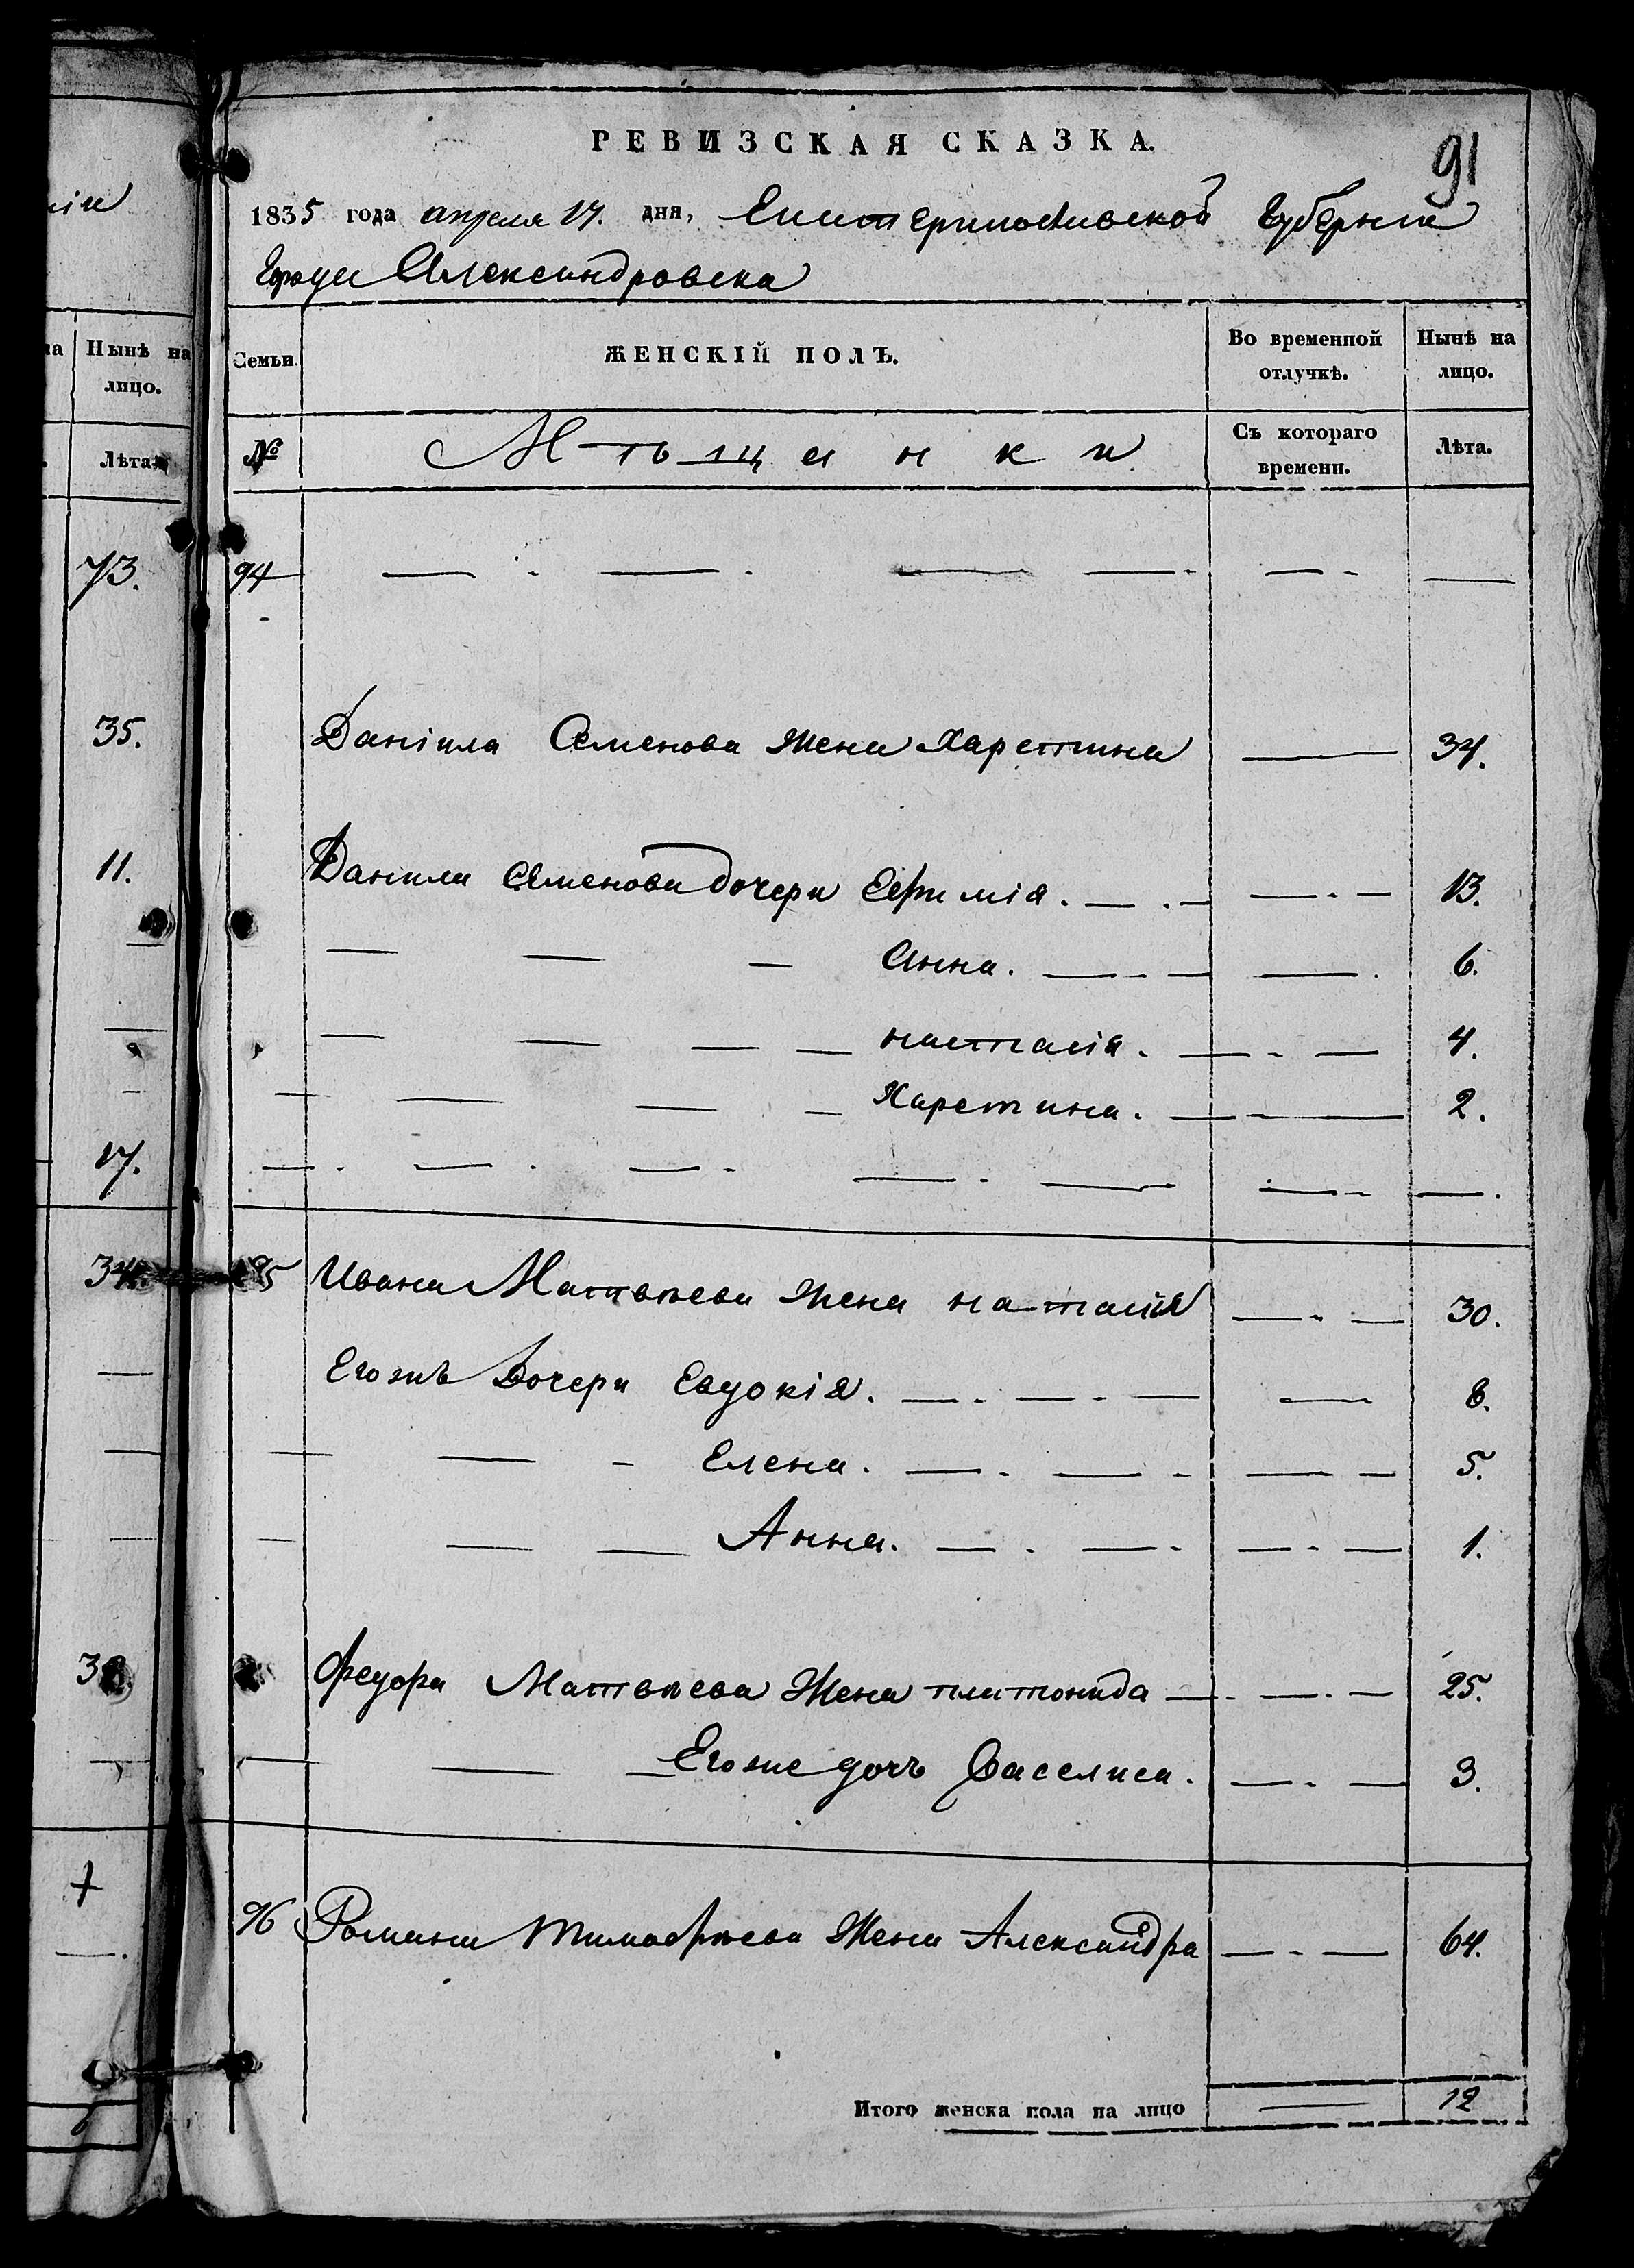 нiи
на
Нынѣ на
лицо.
Лѣта
73.
35.
11.
17.
34.
+
РЕВИЗСКАЯ СКАЗКА.
91
1835 года апреля 17. дня, Екатеринославской Губернiи
города Александровска
Семьи.
ЖЕНСКІЙ ПОЛЪ.
Во временной отлучкѣ.
Нынѣ на лицо.
№
Мѣщанки
Съ котораго времени.
Лѣта.
94
Данiила Семенова Жена Харетина 34.
Данила Семенова дочери Ефимiя. 13.
Анна. 6.
настасiя. 4.
Харетина. 2.
95 Ивана Матвѣева Жена настасiя 30.
Егожъ Дочери Евдокiя. 8.
Елена. 5.
Анна. 1.
Федора Матвѣева Жена платонида 25.
Егоже дочь Васелиса. 3.
96 Романа Тимофѣева Жена Александра 64.
Итого женска пола на лицо 12